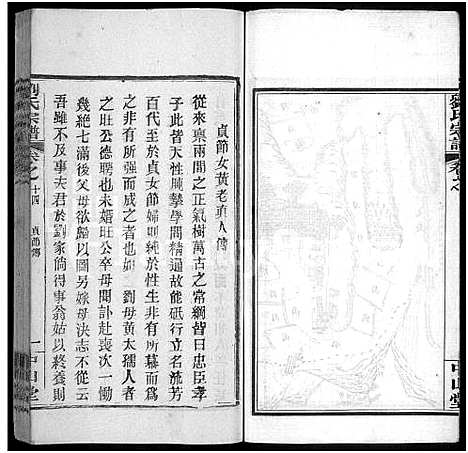 劉氏宗譜
卷之
中山堂
貞節女黃老孺人傳
從來稟兩間之正氣樹萬古之常綱皆曰忠臣孝
子此皆天性肫摯學問精通故能砥行立名流芳
百代至於貞女節婦則純於性生非有所慕而為
之非有所強而咸之者也如　劉母黃太孺人者
之旺公德聘也未婚旺公卒母聞訃赴喪一慟
幾絕七滿後父母欲歸以圖另嫁母決志不從曰
吾雖不幸事夫君於劉家倘得事翁姑以終養則
劉氏宗譜
卷之
十四
貞節傳
一
中山堂